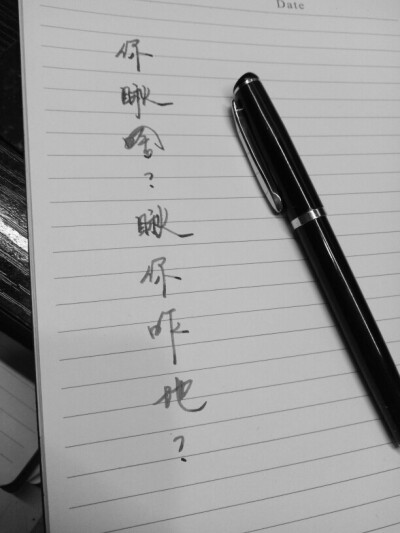 Date
你瞅啥？瞅你咋地？